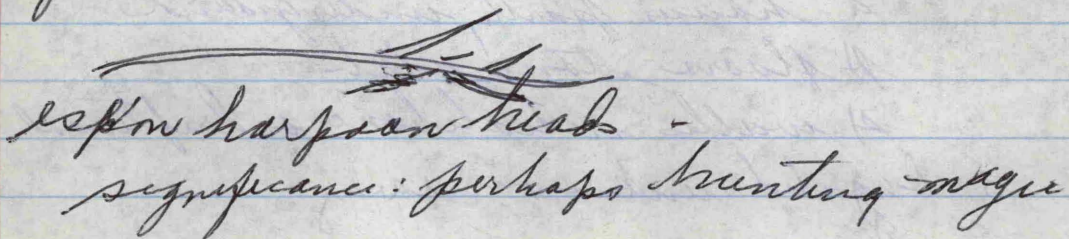 esp on harpoon heads -
significance: perhaps hunting magic